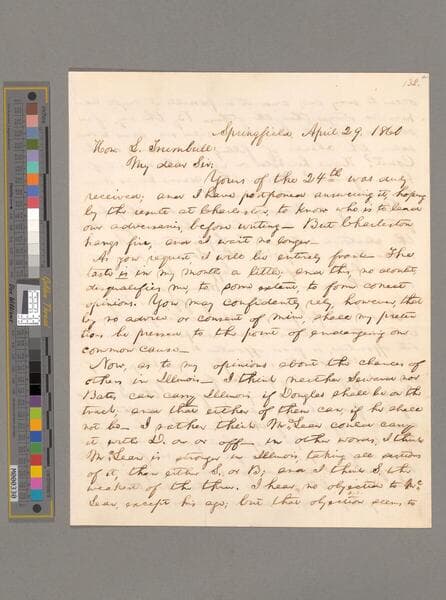 138.
Springfield, April 29, 1860
Hon. L. Trumbull:
My dear Sir:
Yours of the 24th was duly
received; and I have postponed answering it, hoping
by the result at Charleston, to know who is to lead
our adversaries, before writing— But Charleston
hangs fire, and I wait no longer—
As you request, I will be entirely frank— The
taste is in my mouth a little; and this, no doubt,
disqualifies me, to some extent, to form correct
opinions. You may confidently rely, however, that
by no advice or consent of mine, shall my preten-
tions be pressed to the point of endangering our
common cause—
Now, as to my opinions about the chances of
others in Illinois— I think neither Seward nor
Bates can carry Illinois if Douglas shall be on the
track; and that either of them can, if he shall
not be— I rather think McLean could carry
it with D. on or off— In other words, I think
McLean is stronger in Illinois, taking all sections
of it, than either S. or B; and I think S. the
weakest of the three. I hear no objection to Mc
Lean, except his age; but that objection seems to